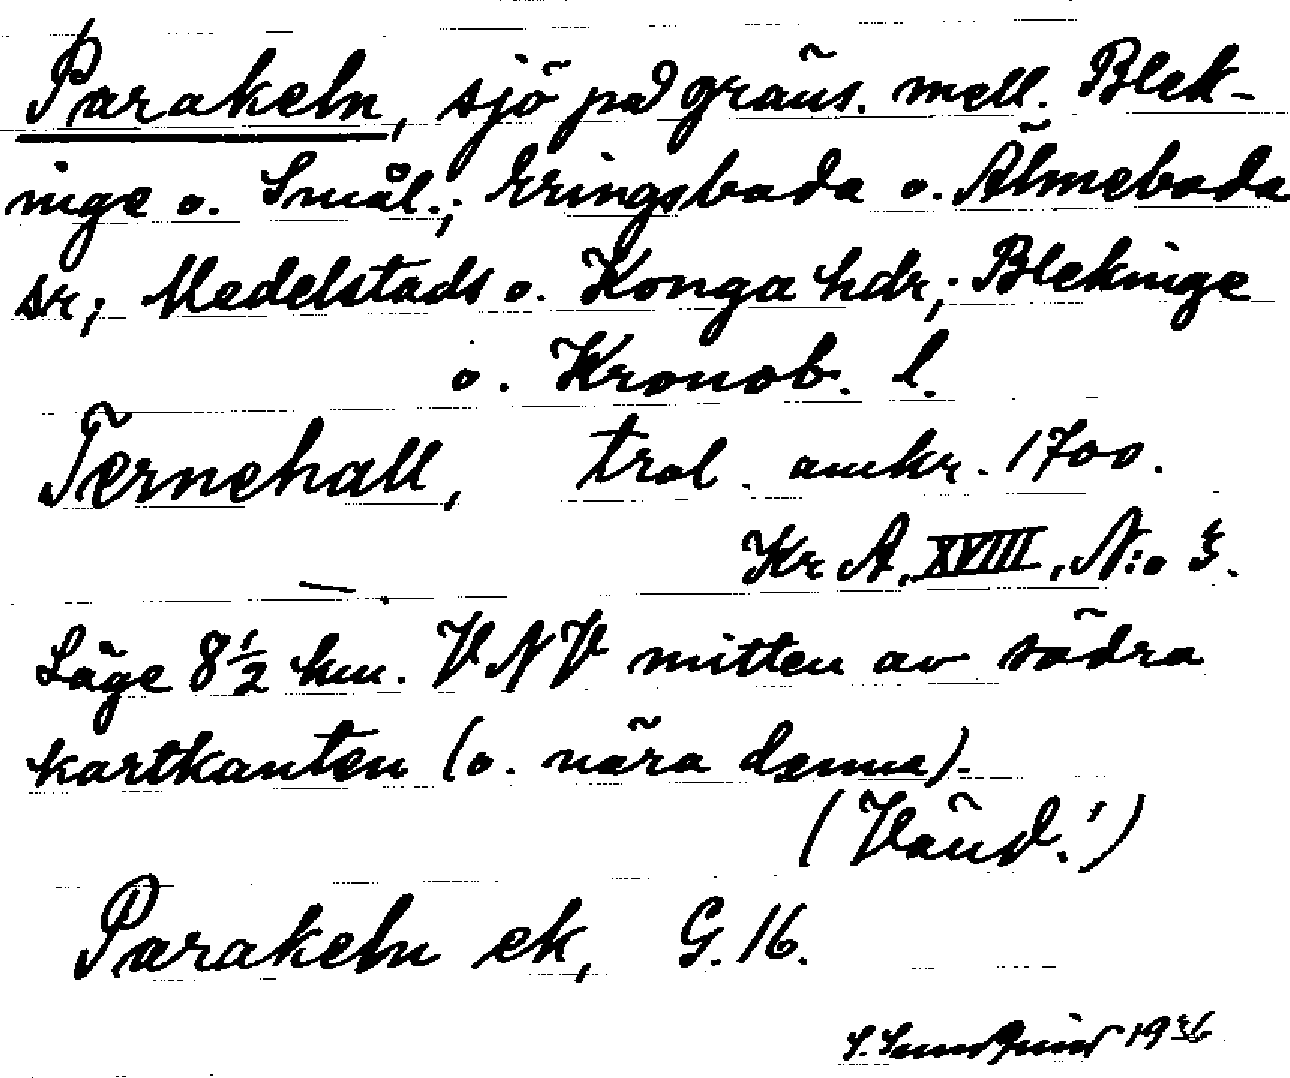 Parakeln, sjö på gräns. mell. Blek-
inge o. Smål.; Eringsboda o. Älmeboda
sr; Medelstads o. Konga hdr; Blekinge
o. Kronob. l.
Ternehall, trol. omkr. 1700.
Kr A, XVIII, N:o 3.
Läge 8½ km. VNV mitten av södra
kartkanten (o. nära denna).
(Vänd!)
Parakeln ek, G. 16.
1936